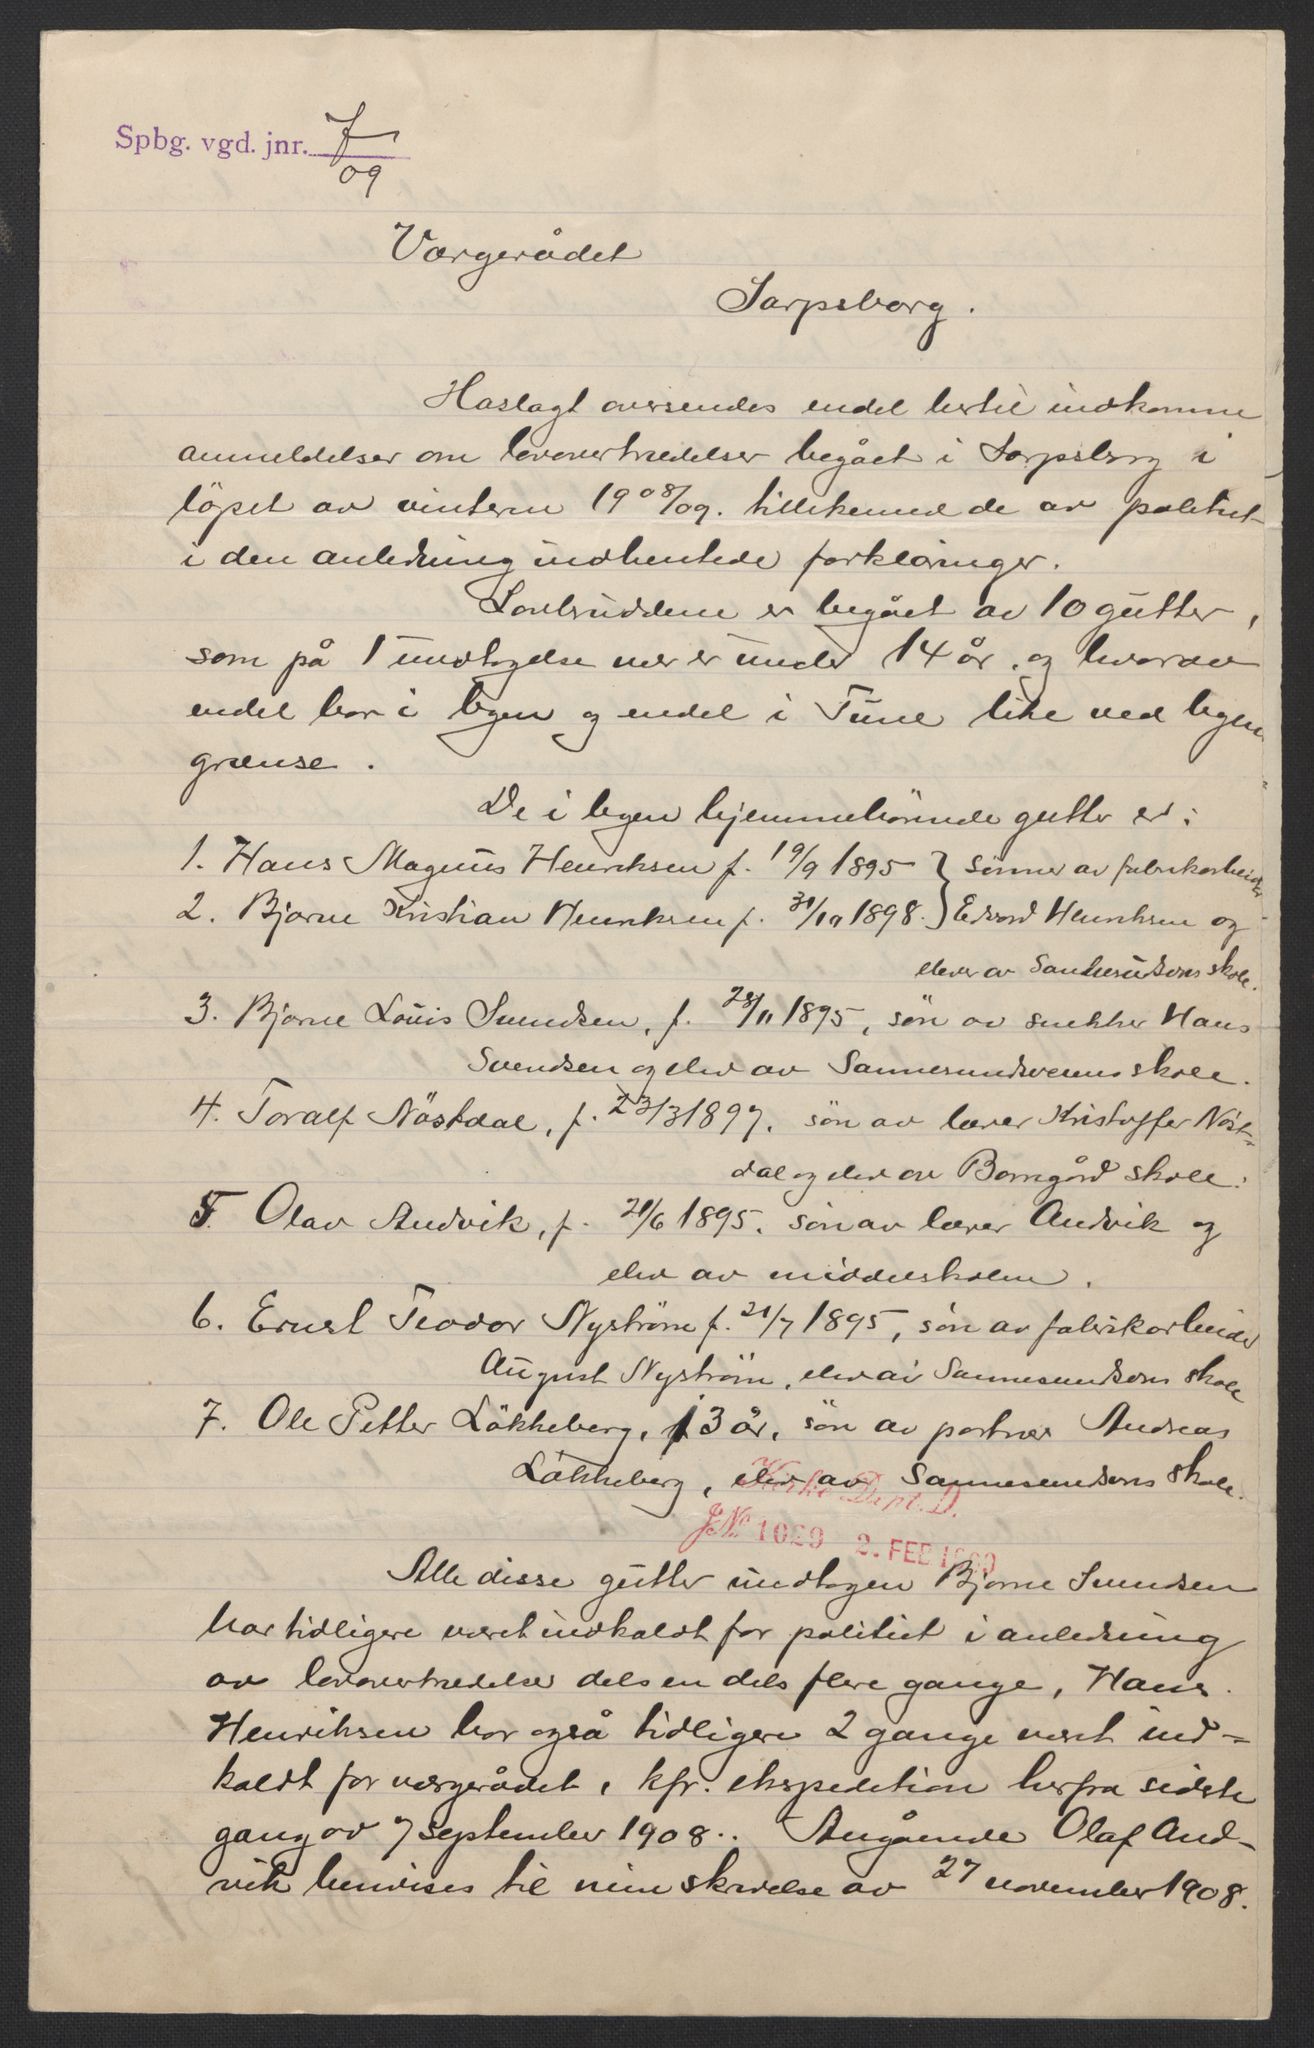 Spbg. vgd. jnr. 7/09
Værgerådet
Sarpsborg.
Haslagt oversendes endel hertil indkomne
anmeldelser om lovovertrædelser begået i Sarpsborg i
löpet av vinteren 1908/09. tillikemed de av politiet
i den anledning indhentede forklaringer.
Lovbruddene er begået av 10 gutter,
som på 1 undtagelse nær er under 14 år, og hvorav
endel bor i byen og endel i Tune like ved byens
grænse.
De i byen hjemmehörende gutter er:
1. Hans Magnus Henriksen f. 19/9 1895 } sönner av fabrikarbeider
2. Bjarne Kristian Henriksen f. 31/10 1898. } Edvard Henriksen og
elever av Sandesundsvns skole.
3. Bjarne Louis Svendsen, f. 28/11 1895, sön av snekker Hans
Svendsen og elev av Sannesundsveiens skole.
4. Toralf Nöstdal, f. 23/3 1897, sön av lærer Kristoffer Nöst-
dal og elev av Borregård skole.
5. Olav Andvik, f. 21/6 1895. sön av lærer Andvik og
elev av middelskolen.
6. Ernst Teodor Nyström f. 21/7 1895, sön av fabrikarbeider
August Nyström, elev av Sannesundsvns skole
7. Ole Petter Lökkeberg, 13 år, sön av portner Andreas
Lökkeberg, elev av Sannesundsvns skole.
Kirke Dept. D.
J№ 1029 2. FEB 1909
Alle disse gutter undtagen Bjarne Svendsen
har tidligere været indkaldt for politiet i anledning
av lovovertrædelser dels en dels flere gange, Hans
Henriksen har også tidligere 2 gange været ind-
kaldt for værgerådet, kfr. ekspedition herfra sidste
gang av 7 september 1908.. Angående Olaf And-
vik henvises til min skrivelse av 27 november 1908.